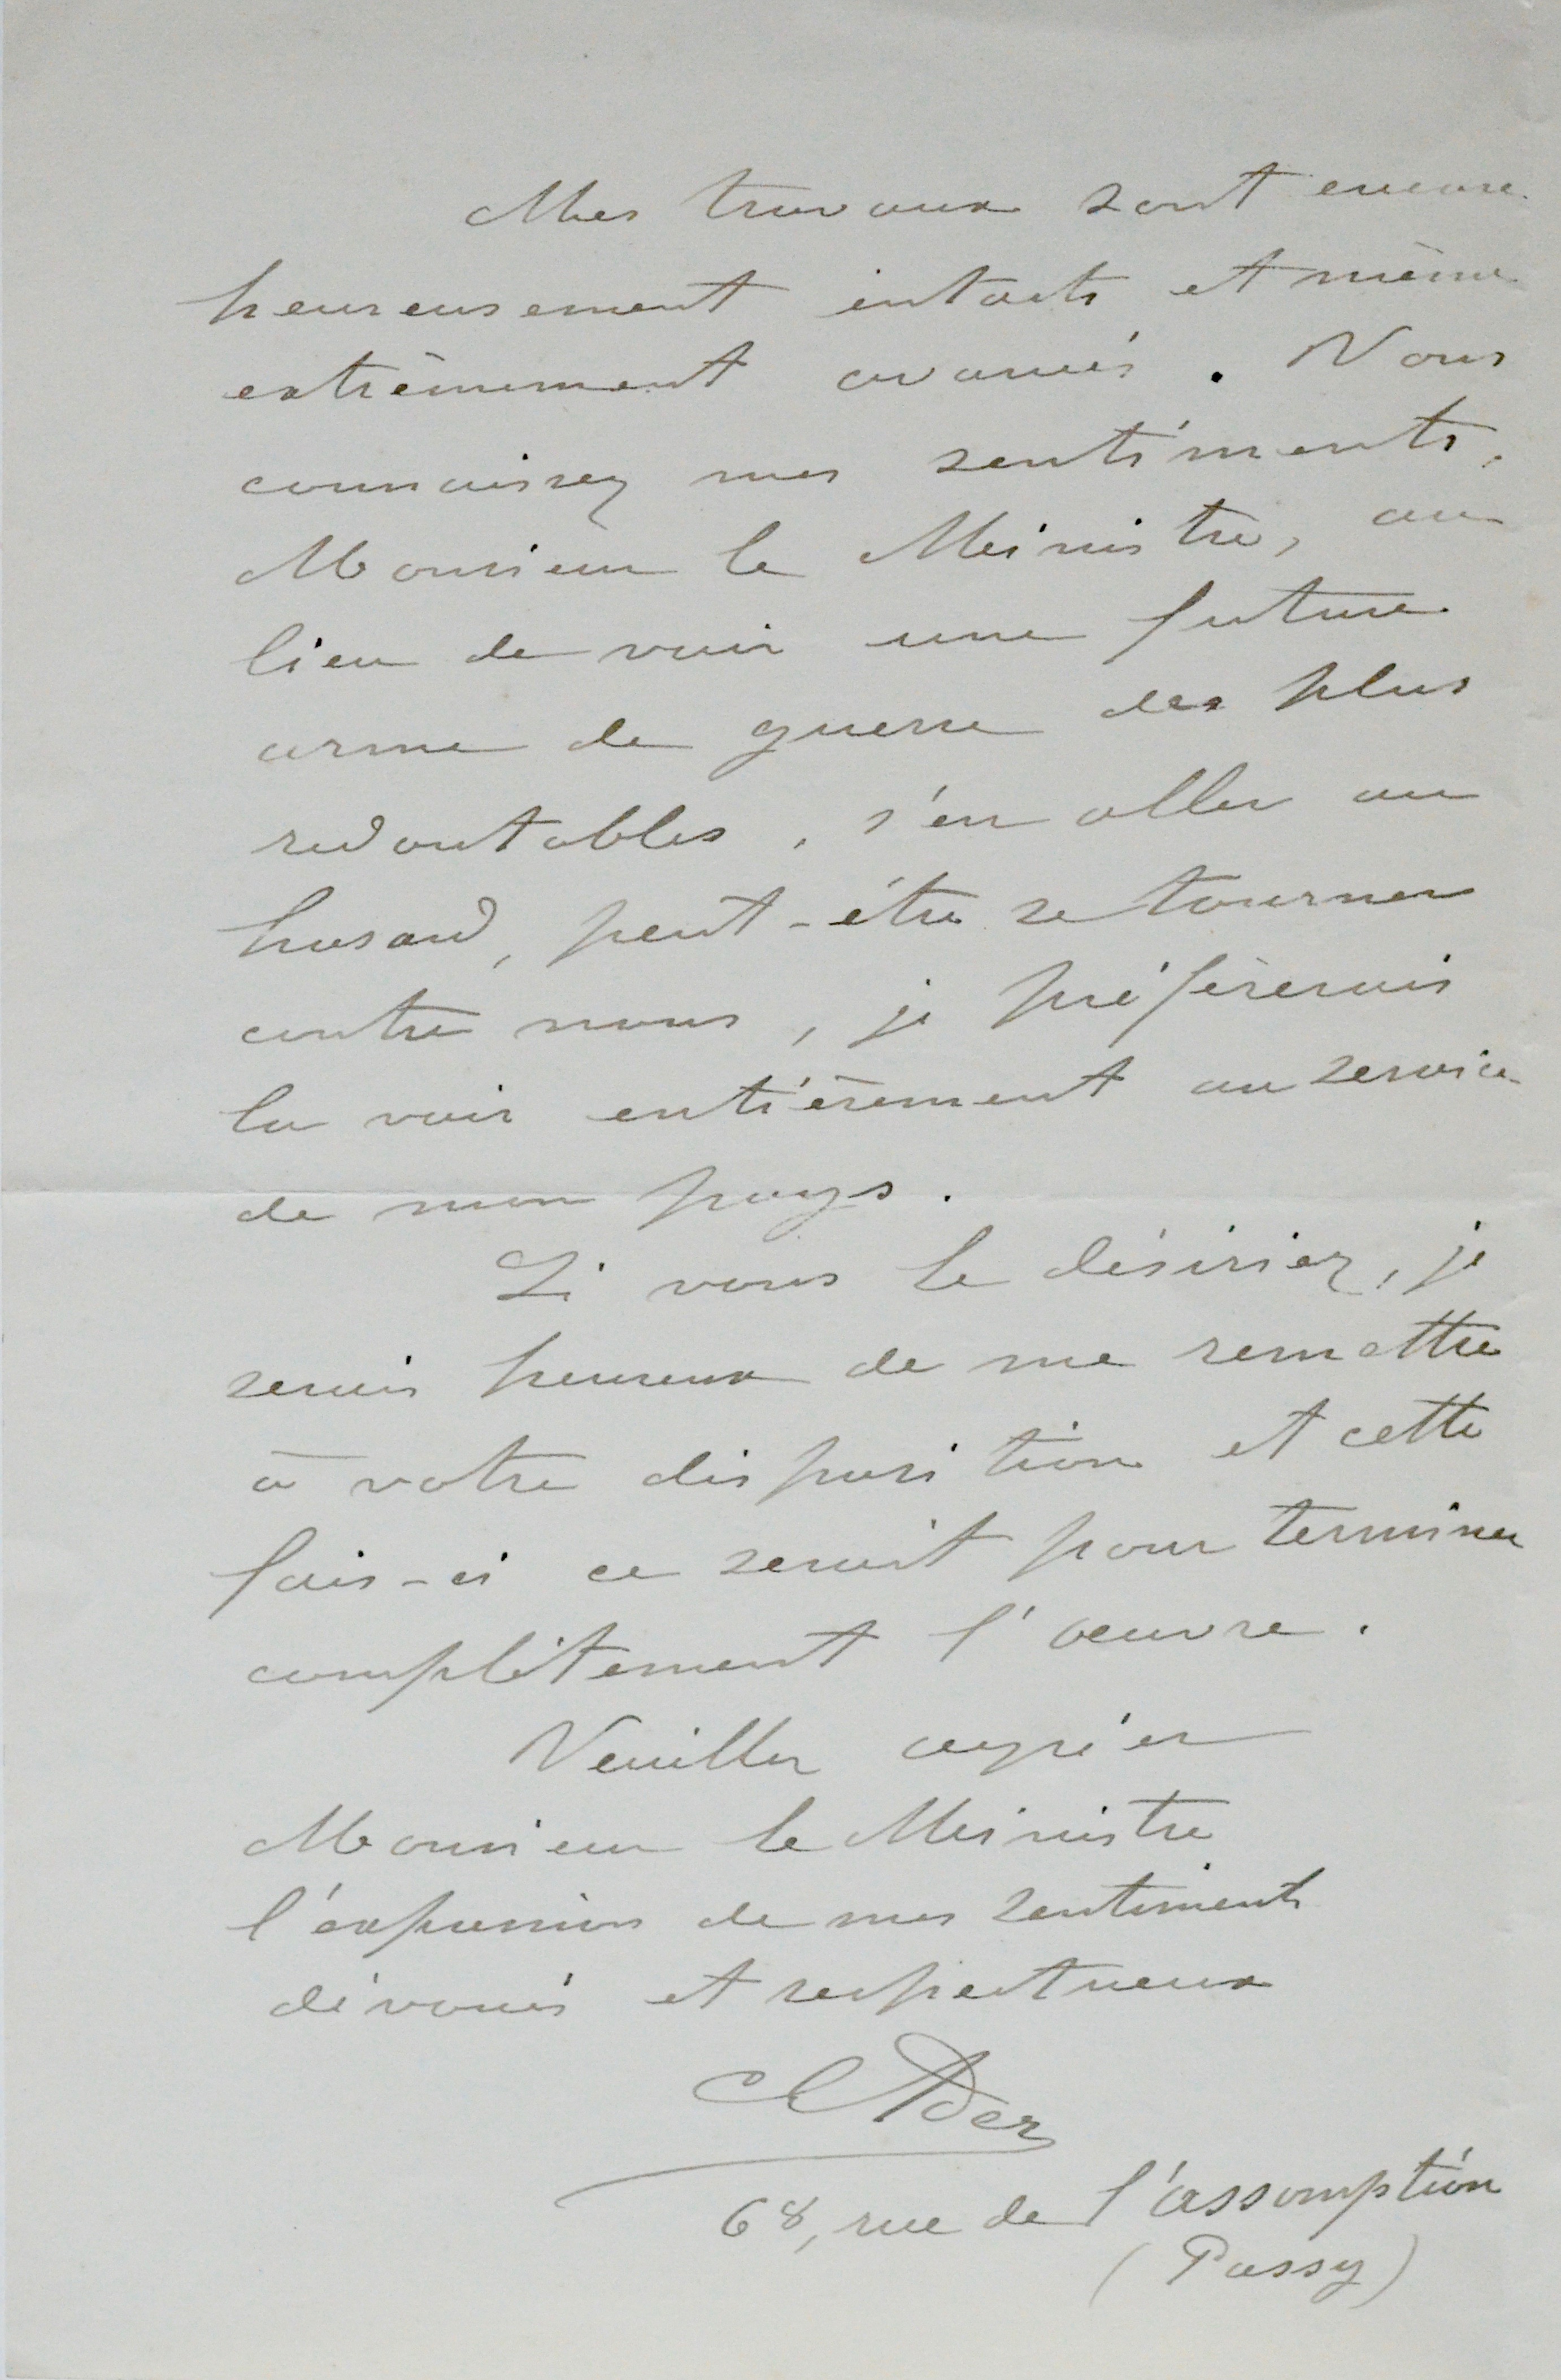 Mes travaux sont encore
heureusement intacts et même
extrèmement avancés. Vous
connaissez mes sentiments,
Monsieur le Ministre, au
lieu de voir une future
arme de guerre des plus
redoutables, s'en aller au
hasard, peut-être se tourner
contre nous, je préfèrerais
la voir entièrement au service
de mon pays.
Si vous le désiriez, je
serais heureux de me remettre
à votre disposition et cette
fois-ci ce serait pour terminer
complètement l'œuvre.
Veuillez agréer
Monsieur le Ministre
l'expression de mes sentiments
dévoués et respectueux
C Ader
68, rue de l'assomption
(Passy)